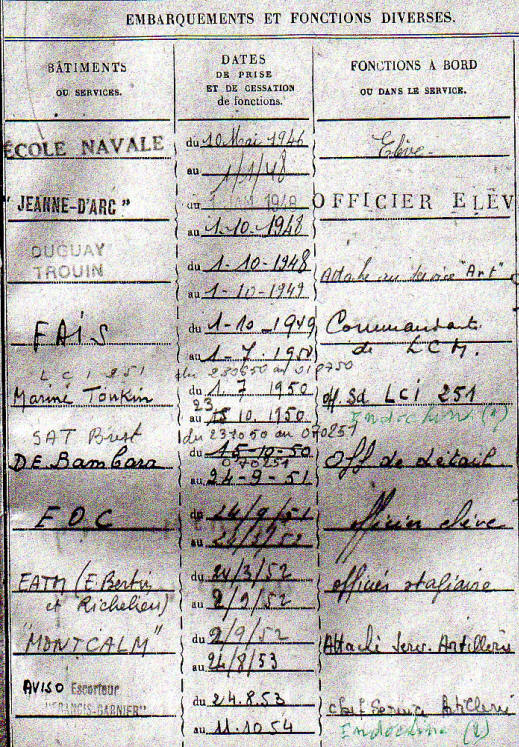 EMBARQUEMENTS ET FONCTIONS DIVERSES.
BÂTIMENTS
OU SERVICES.
DATES
DE PRISE
ET DE CESSATION
de fonctions.
FONCTIONS A BORD
OU DANS LE SERVICE.
ÉCOLE NAVALE du 10 Mai 1946 Elève
au 1/1/48
"JEANNE-D'ARC" du 1 JAN 1948 OFFICIER ELÈV
au 1-10-1948
DUGUAY
TROUIN
du 1-10-1948 Attaché au service "Art"
au 1-10-1949
FAIS du 1-10-1949 Commandant
au 1-7-1950 de LCM.
LCI 251 du 230650 au 010750
Marine Tonkin du 1.7 1950 off. sd LCI 251
23
au 15 10. 1950 Indochine (1)
SAT Brest du 231050 au 070251
DE Bambara du 15-10-50 Off de détail
070251
au 24-9-51
EOC du 24/9/51 officier élève
au 24/3/52
EATM (E. Bertin du 24/3/52 officier stagiaire
et Richelieu) au 2/9/52
"MONTCALM" du 2/9/52 Attaché Serv. Artillerie
au 24/8/53
AVISO Escorteur
"FRANCIS-GARNIER" du 24.8.53 chef Service Artillerie
au 11.10.54 Indochine (2)